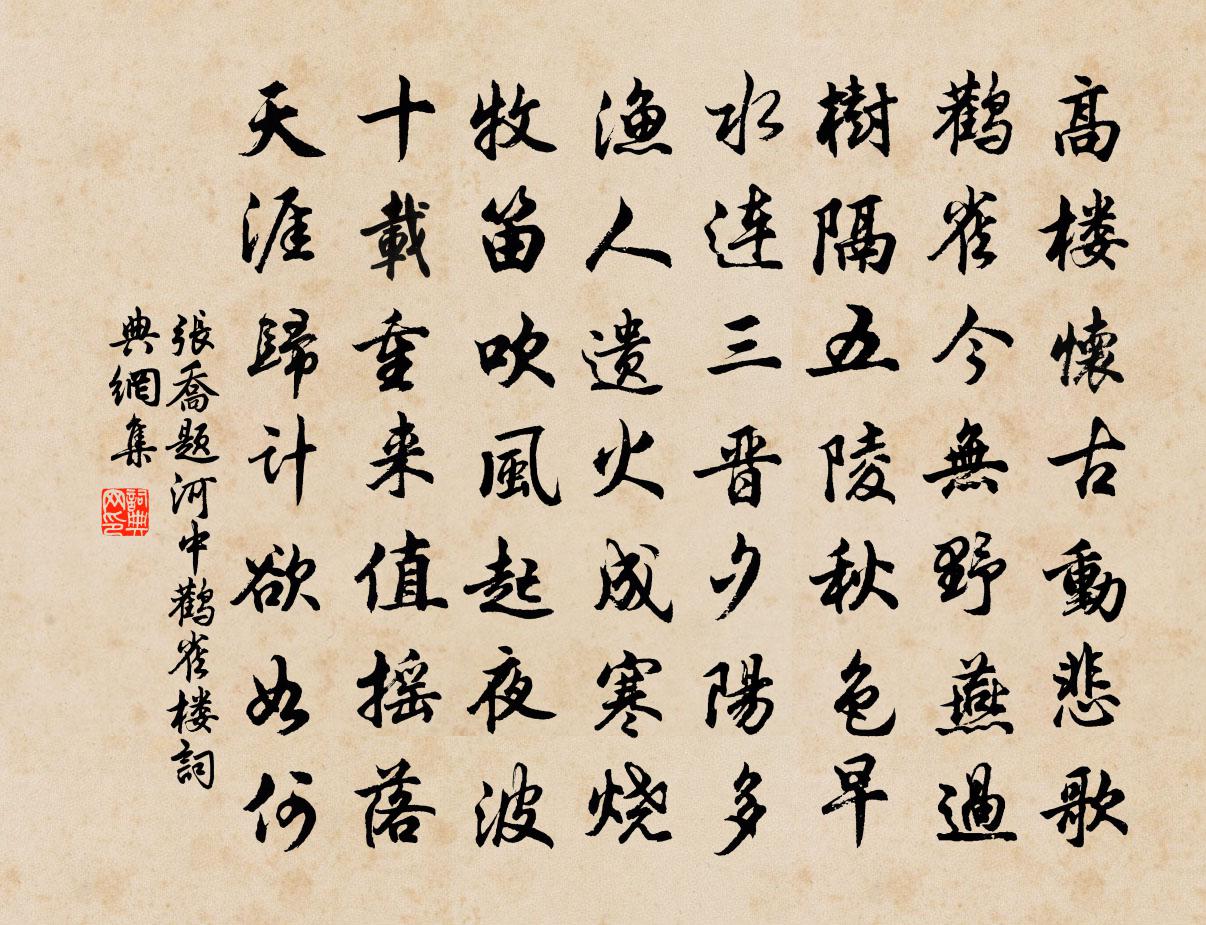 高楼懷古動悲歌
鹳雀今無野燕過
樹隔五陵秋色早
水連三晋夕陽多
漁人遗火成寒烧
牧笛吹風起夜波
十載重来值摇落
天涯歸计欲如何
張喬题河中鹳雀楼詞
典網集
詞典
网印